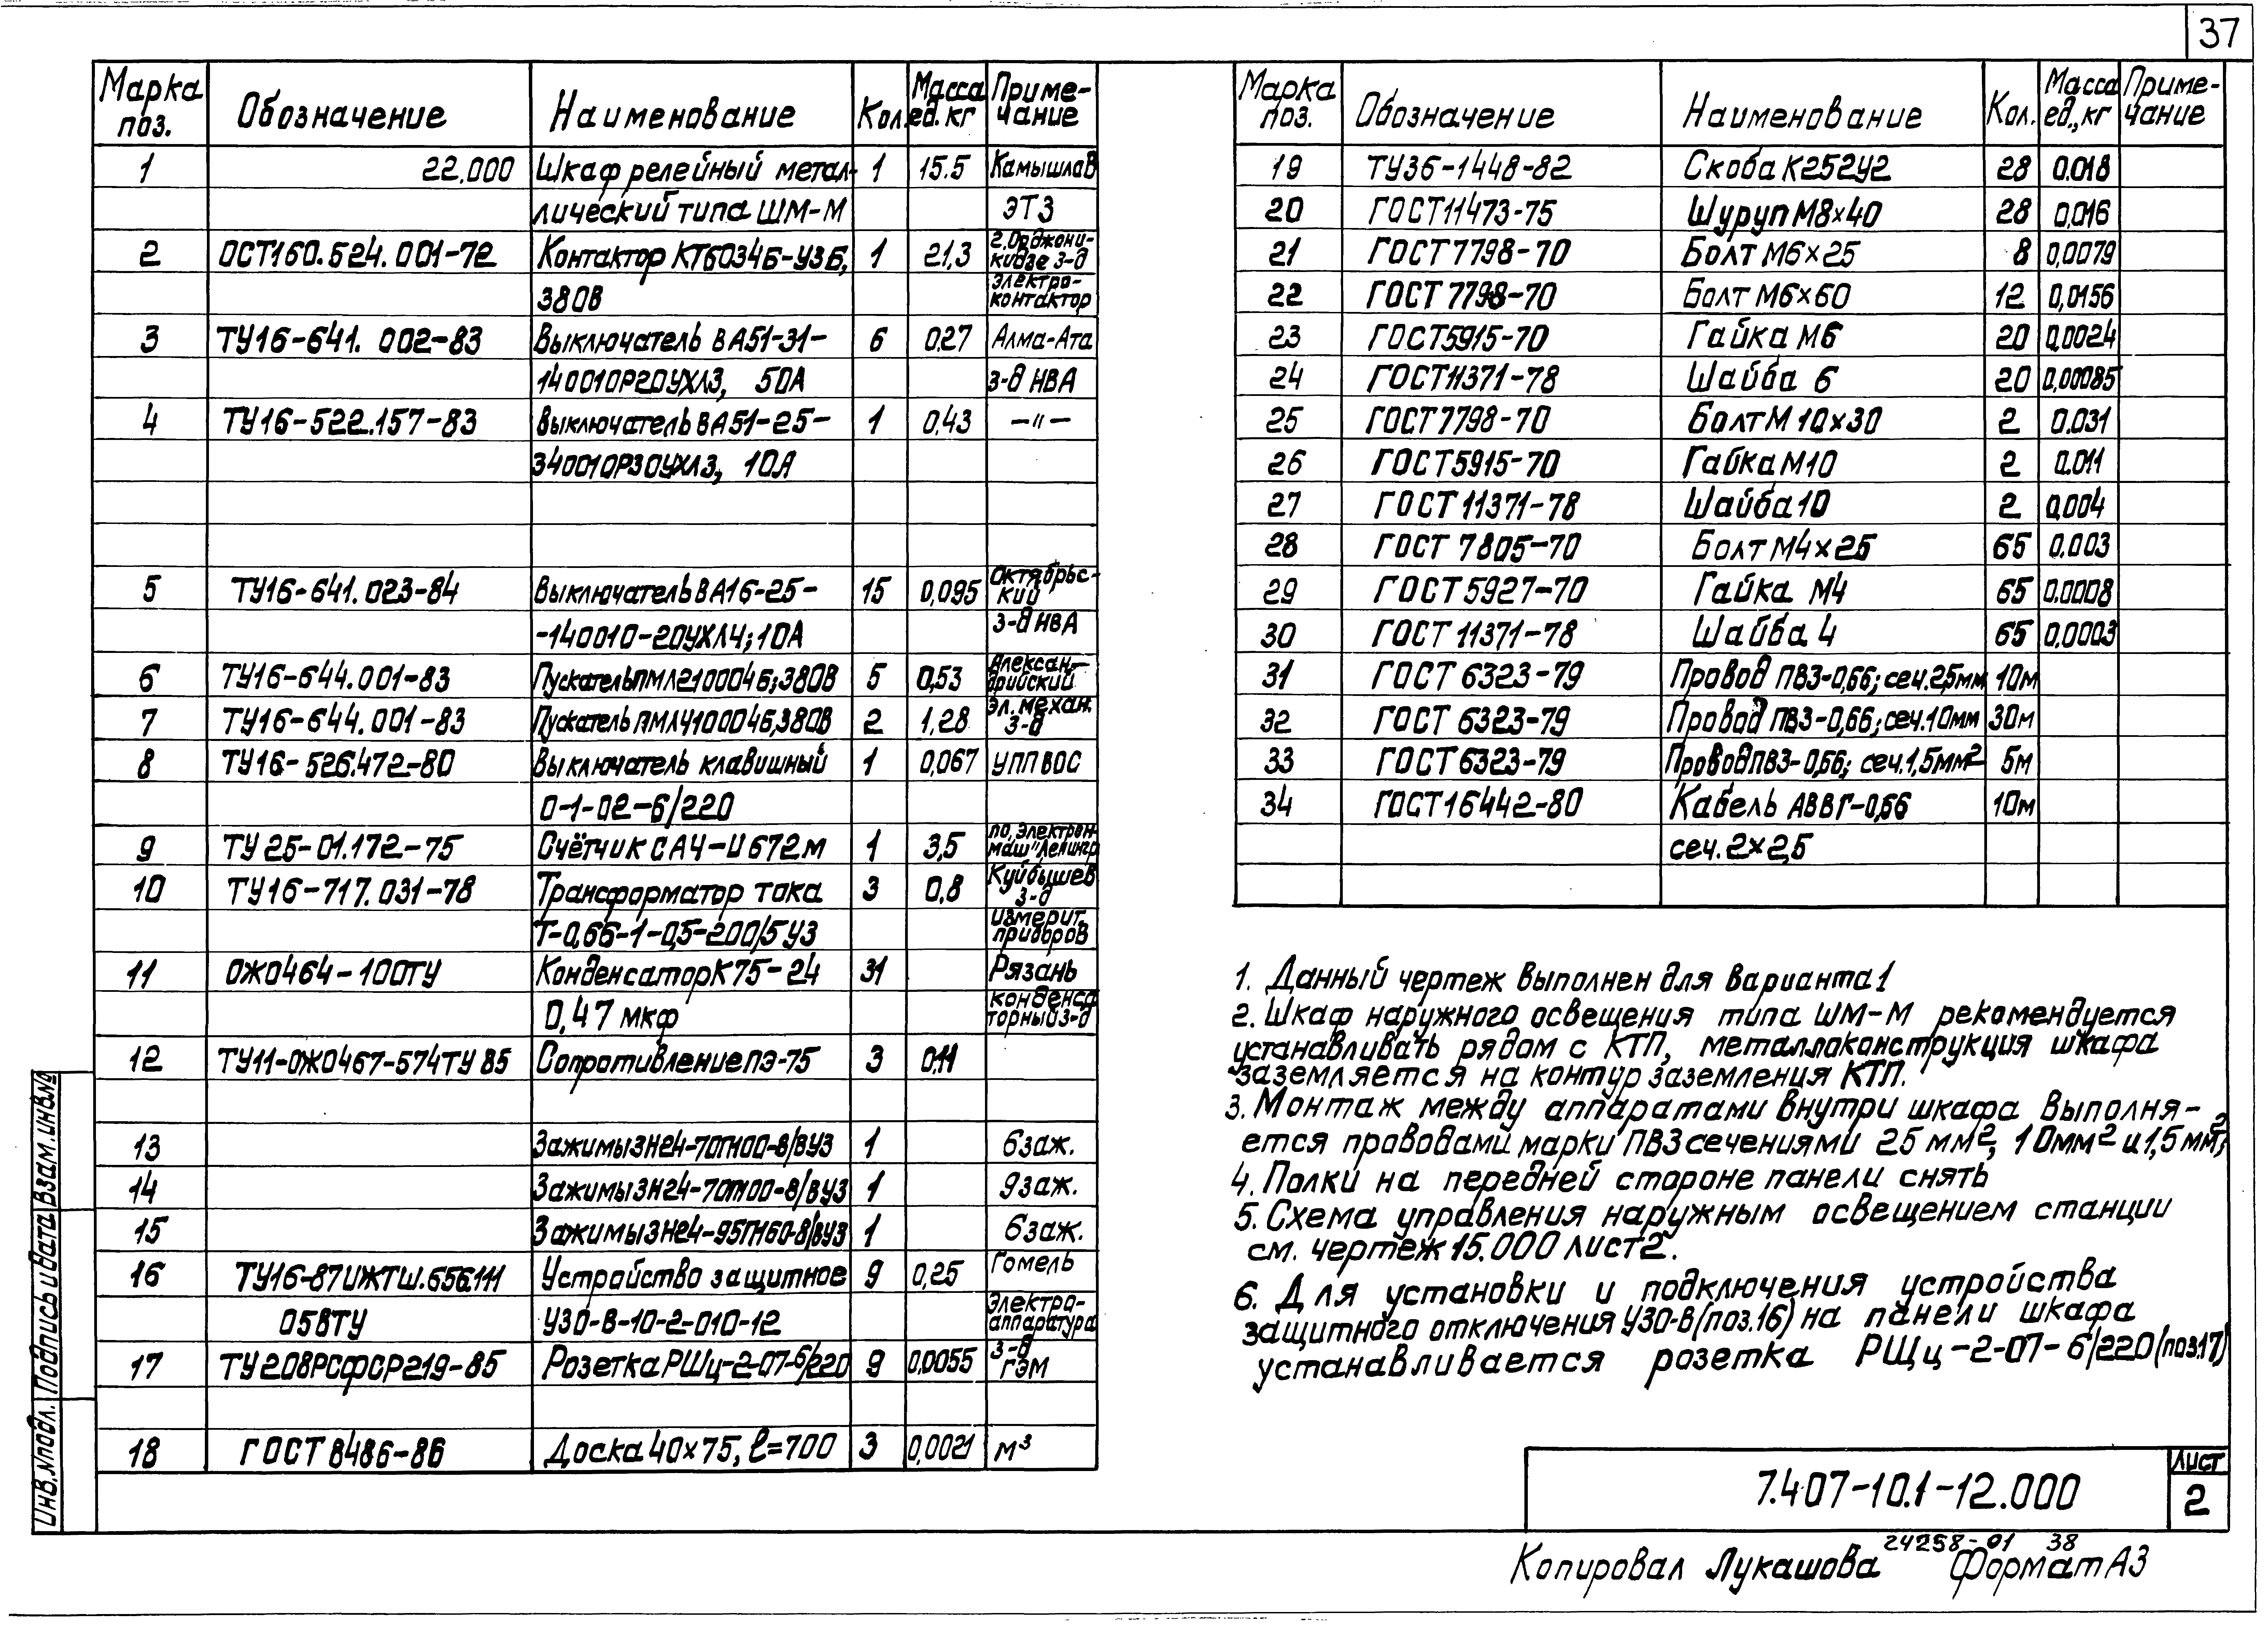 37
Марка поз. Обозначение Наименование Кол. Масса ед. кг Приме-чание
1 22.000 Шкаф релейный метал- 1 15.5 Камышлов
лический типа ШМ-М ЭТЗ
2 ОСТ160.524.001-72 Контактор КТ6034Б-У3Б, 1 21,3 г.Орджони-кидзе з-д
380В Электро-контактор
3 ТУ16-641.002-83 Выключатель ВА51-31- 6 0.27 Алма-Ата
140010Р20УХЛ3, 50А з-д НВА
4 ТУ16-522.157-83 Выключатель ВА51-25- 1 0,43 —"—
340010Р30УХЛ3, 10А
5 ТУ16-641.023-84 Выключатель ВА16-25- 15 0,095 Октябрьс-кий
-140010-20УХЛ4; 10А з-д НВА
6 ТУ16-644.001-83 Пускатель ПМЛ210004Б; 380В 5 0,53 Алексан-дрийский
7 ТУ16-644.001-83 Пускатель ПМЛ410004Б, 380В 2 1,28 эл. механ. з-д
8 ТУ16-526.472-80 Выключатель клавишный 1 0,067 УПП ВОС
0-1-02-6/220
9 ТУ 25-01.172-75 Счётчик САЧ-И672М 1 3,5 по,Электрон-маш"Ленингр
10 ТУ16-717.031-78 Трансформатор тока 3 0,8 Куйбышев з-д
Т-0,66-1-0,5-200/5 У3 измерит. приборов
11 ОЖ0464-100ТУ Конденсатор К75-24 31 Рязань
0,47 мкф конденса торный з-д
12 ТУ11-ОЖ0467-574ТУ 85 Сопротивление ПЭ-75 3 0.11
13 Зажимы ЗН24-70П100-В/ВУЗ 1 6заж.
14 Зажимы ЗН24-70П100-В/ВУЗ 1 9заж.
15 Зажимы ЗН24-95П160-В/ВУЗ 1 6заж.
16 ТУ16-87ИЖТШ.656.111 Устройство защитное 9 0,25 Гомель
05ВТУ УЗО-В-10-2-010-12 Электро-аппаратура
17 ТУ208РСФСР219-85 Розетка РШц-2-07-6/220 9 0,0055 з-д ГЭМ
18 ГОСТ 8486-86 Доска 40×75, ℓ=700 3 0,0021 м³
Марка поз. Обозначение Наименование Кол. Масса ед., кг Приме-чание
19 ТУ36-1448-82 Скоба К252У2 28 0.018
20 ГОСТ11473-75 Шуруп М8×40 28 0,016
21 ГОСТ 7798-70 Болт М6×25 8 0,0079
22 ГОСТ 7798-70 Болт М6×60 12 0,0156
23 ГОСТ5915-70 Гайка М6 20 0,0024
24 ГОСТ11371-78 Шайба 6 20 0,00085
25 ГОСТ7798-70 Болт М10×30 2 0.031
26 ГОСТ5915-70 Гайка М10 2 0.011
27 ГОСТ 11371-78 Шайба 10 2 0,004
28 ГОСТ 7805-70 Болт М4×25 65 0.003
29 ГОСТ 5927-70 Гайка М4 65 0.0008
30 ГОСТ 11371-78 Шайба 4 65 0,0003
31 ГОСТ 6323-79 Провод ПВ3-0,66; сеч.2,5мм 10м
32 ГОСТ 6323-79 Провод ПВ3-0,66; сеч.10мм 30м
33 ГОСТ 6323-79 Провод ПВ3-0,66; сеч.1,5мм² 5м
34 ГОСТ16442-80 Кабель АВВГ-0,66 10м
сеч. 2×2,5
1. Данный чертеж выполнен для варианта 1
2. Шкаф наружного освещения типа ШМ-М рекомендуется
устанавливать рядом с КТП, металлоконструкция шкафа
заземляется на контур заземления КТП.
3. Монтаж между аппаратами внутри шкафа выполня-
ется проводами марки ПВ3 сечениями 25 мм², 10мм² и 1,5мм²;
4. Полки на передней стороне панели снять
5. Схема управления наружным освещением станции
см. чертеж 15.000 лист2.
6. Для установки и подключения устройства
защитного отключения УЗО-В(поз.16) на панели шкафа
устанавливается розетка РЩц-2-07-6/220(поз.17)
Инв.№подл. Подпись и дата Взам.инв.№
7.407-10.1-12.000
Лист
2
24258-01 38
Копировал Лукашова Формат А3